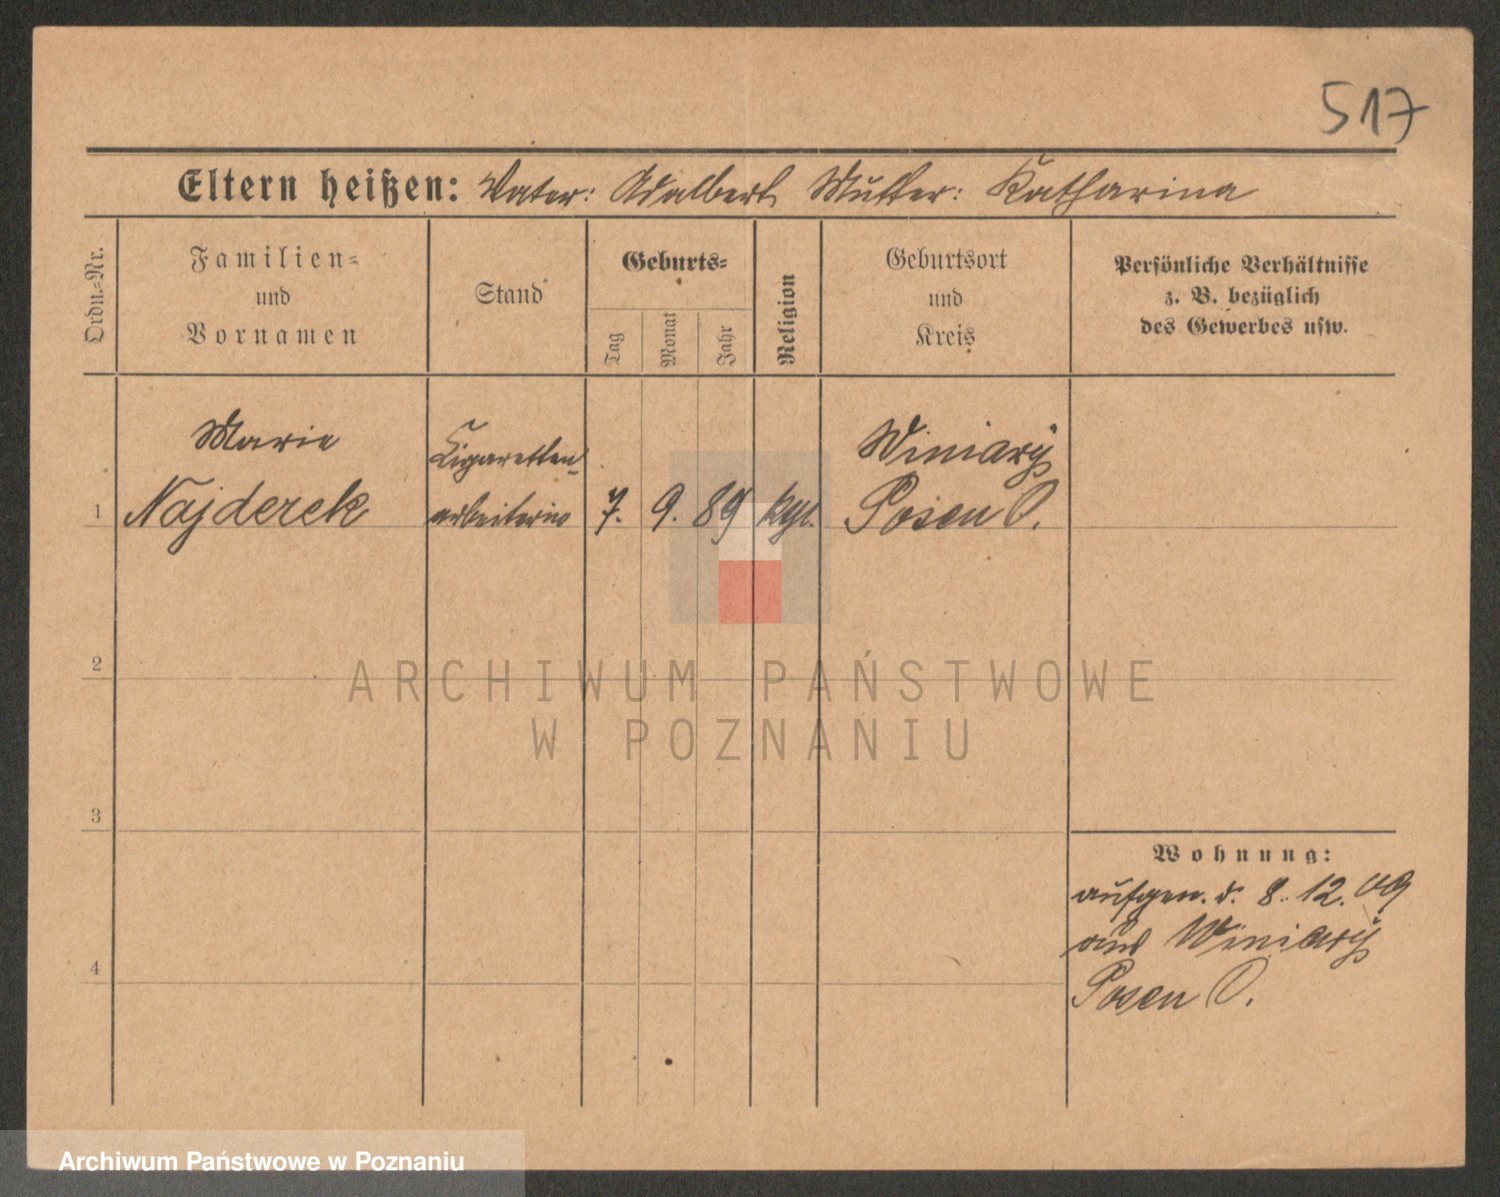 517
Eltern heißen: Vater: Adalbert Mutter: Katharina
Ordn.-Nr.
Familien-
und
Vornamen
Stand
Geburts-
Tag
Monat
Jahr
Religion
Geburtsort
und
Kreis
Persönliche Verhältnisse
z. B. bezüglich
des Gewerbes usw.
Marie
Cigaretten-
Winiary
1 Najderek arbeiterin 7. 9. 89 Posen O.
2
ARCHIWUM PAŃSTWOWE
W POZNANIU
3
Wohnung:
aufgen. d. 8. 12. 09
aus Winiary
4
Posen O.
Archiwum Państwowe w Poznaniu